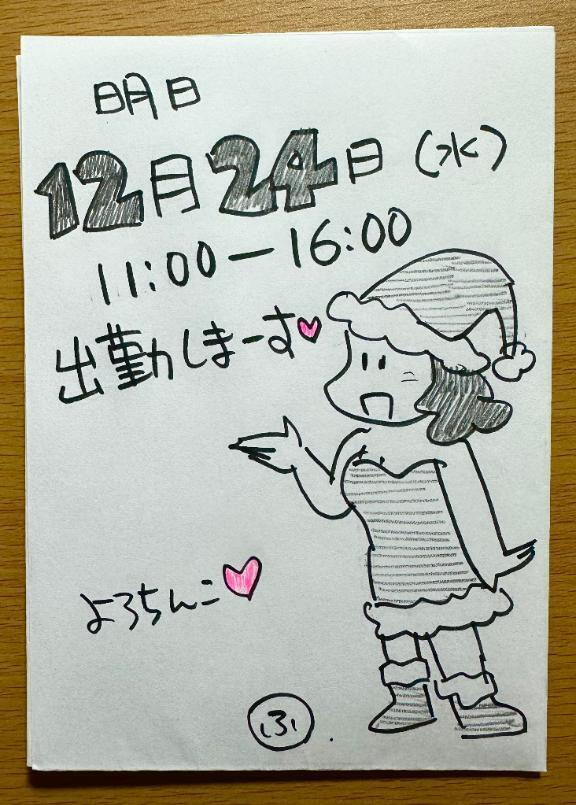 明日
12月24日(水)
11:00ー16:00
出勤しまーす♥
よろちんこ♥
ふ